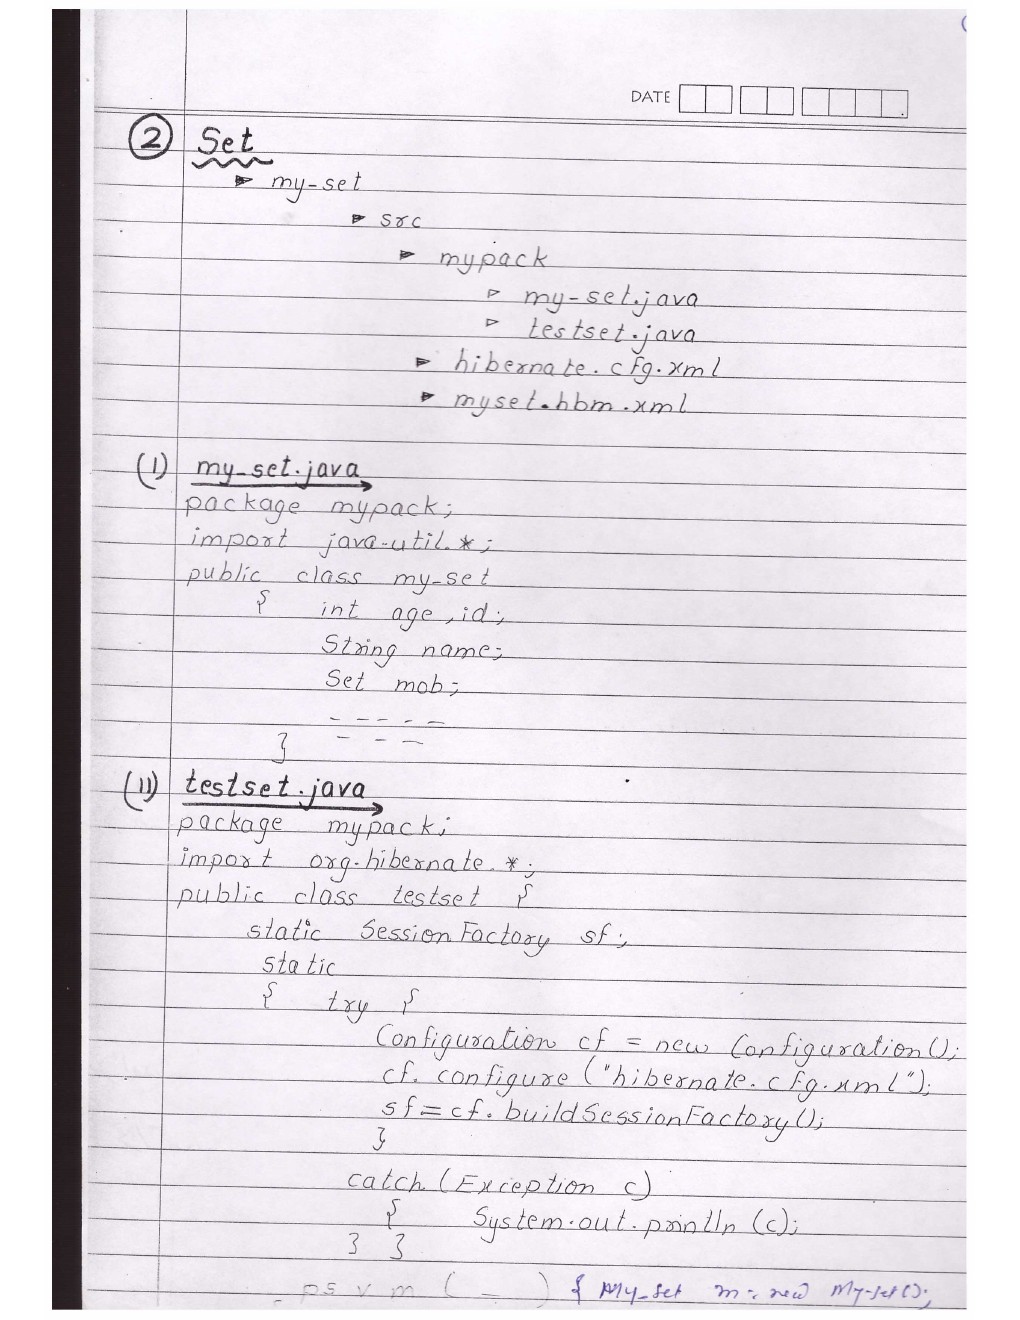 DATE
2 Set
my-set
src
mypack
my-set.java
testset.java
hibernate.cfg.xml
myset.hbm.xml
(I) my-set.java
package mypack;
import java.util.*;
public class my-set
{ int age, id;
String name;
Set mob;
- - - - -
} - - -
(II) testset.java
package mypack;
import org.hibernate.*;
public class testset {
static SessionFactory sf;
static
{ try {
Configuration cf = new Configuration();
cf.configure("hibernate.cfg.xml");
sf=cf.buildSessionFactory();
}
catch (Exception c)
{ System.out.println(c);
} }
ps v m ( - ) { My_set m = new My-set();